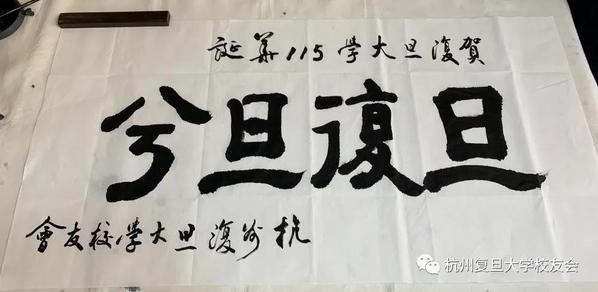 賀復旦大學115華誕
旦復旦兮
杭州復旦大學校友會
杭州复旦大学校友会